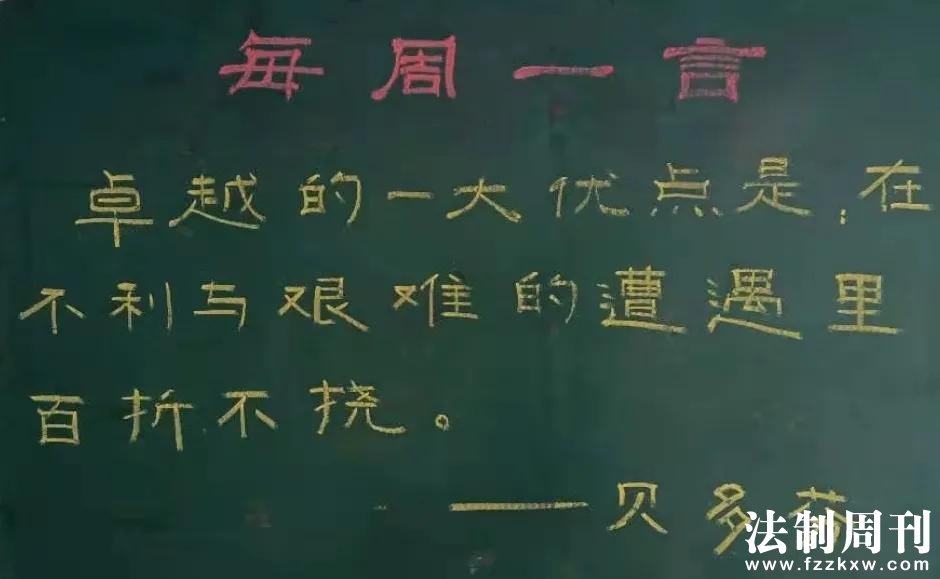 每周一言
卓越的一大优点是,在
不利与艰难的遭遇里
百折不挠。
——贝多芬
法制周刊
www.fzzkxw.com